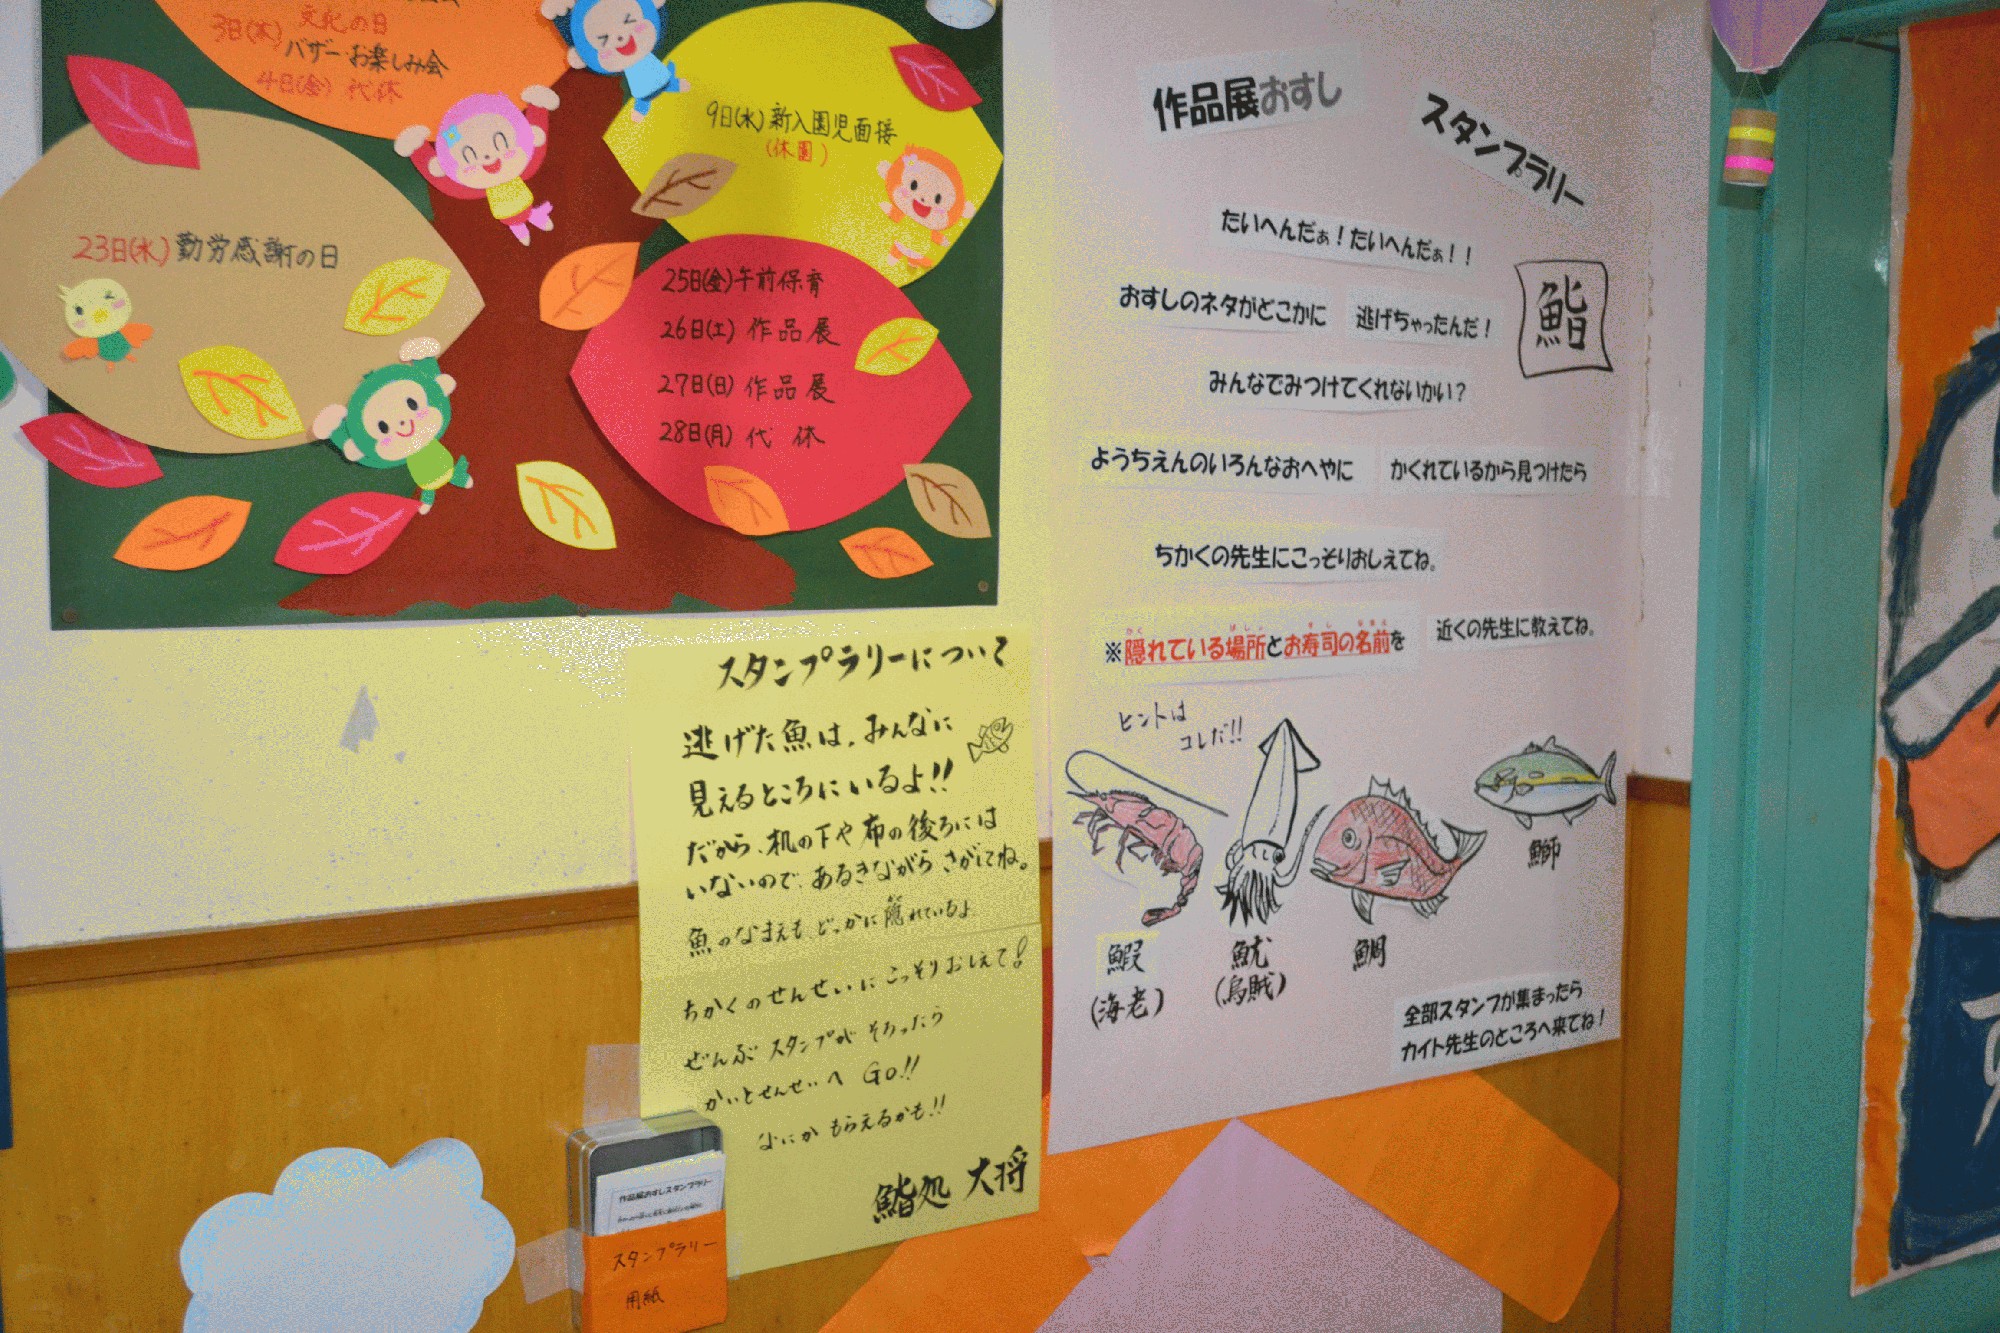 3日(木)文化の日
バザー・お楽しみ会
4日(金)代休
9日(水)新入園児面接
(休園)
23日(水)勤労感謝の日
25日(金)午前保育
26日(土)作品展
27日(日)作品展
28日(月)代休
スタンプラリーについて
逃げた魚は、みんなに
見えるところにいるよ!!
だから、机の下や布の後ろには
いないので、あるきながらさがしてね。
魚のなまえも、どっかに隠れているよ
ちかくのせんせいにこっそりおしえて!
ぜんぶスタンプがそろったら
かいとせんせいへGO!!
なにかもらえるかも!!
鮨処 大将
作品展おすしスタンプラリー
スタンプラリー
用紙
作品展おすし スタンプラリー
たいへんだぁ!たいへんだぁ!!
おすしのネタがどこかに 逃げちゃったんだ!
鮨
みんなでみつけてくれないかい?
ようちえんのいろんなおへやに かくれているから見つけたら
ちかくの先生にこっそりおしえてね。
※隠れている場所とお寿司の名前を 近くの先生に教えてね。
ヒントは
コレだ!!
鰕
(海老)
魷
(烏賊)
鯛
鰤
全部スタンプが集まったら
カイト先生のところへ来てね!
す